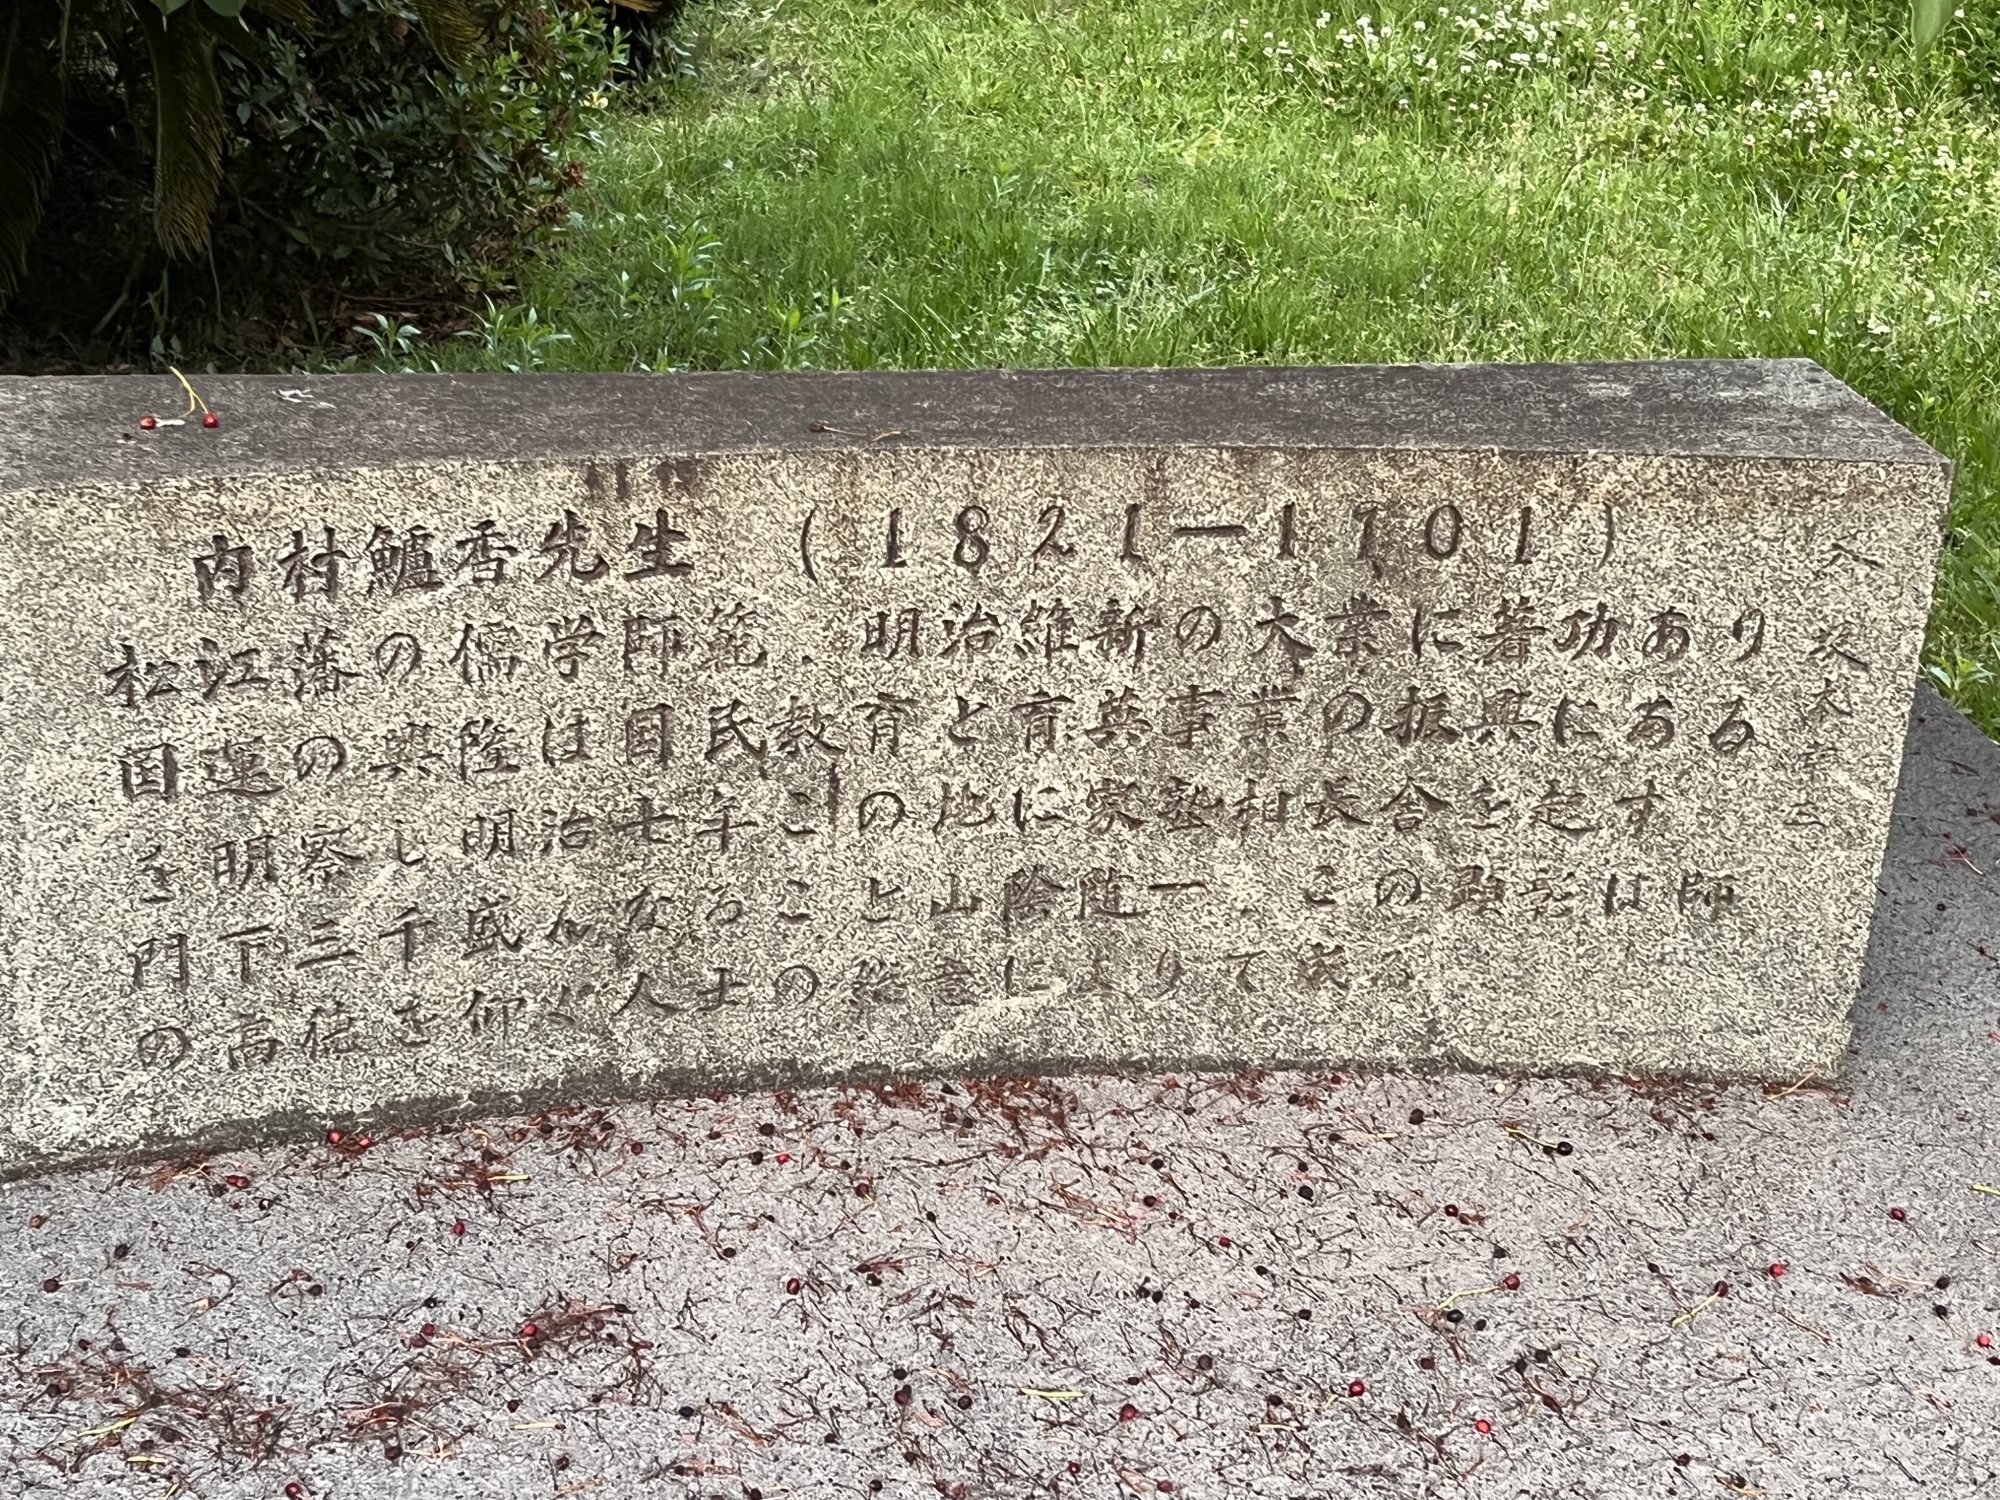 内村鱸香先生 (1821—1901)
松江藩の儒学師範、明治維新の大業に著功あり
国運の興隆は国民教育と育英事業の振興にある
を明察し明治七年この地に家塾相長舎を起す
門下三千盛んなること山陰随一、この顕彰は師
の高徳を仰ぐ人士の発意によりて成る